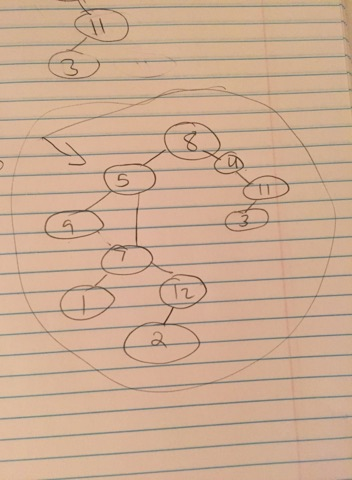 11
3
8
5
4
11
9
3
7
1
12
2